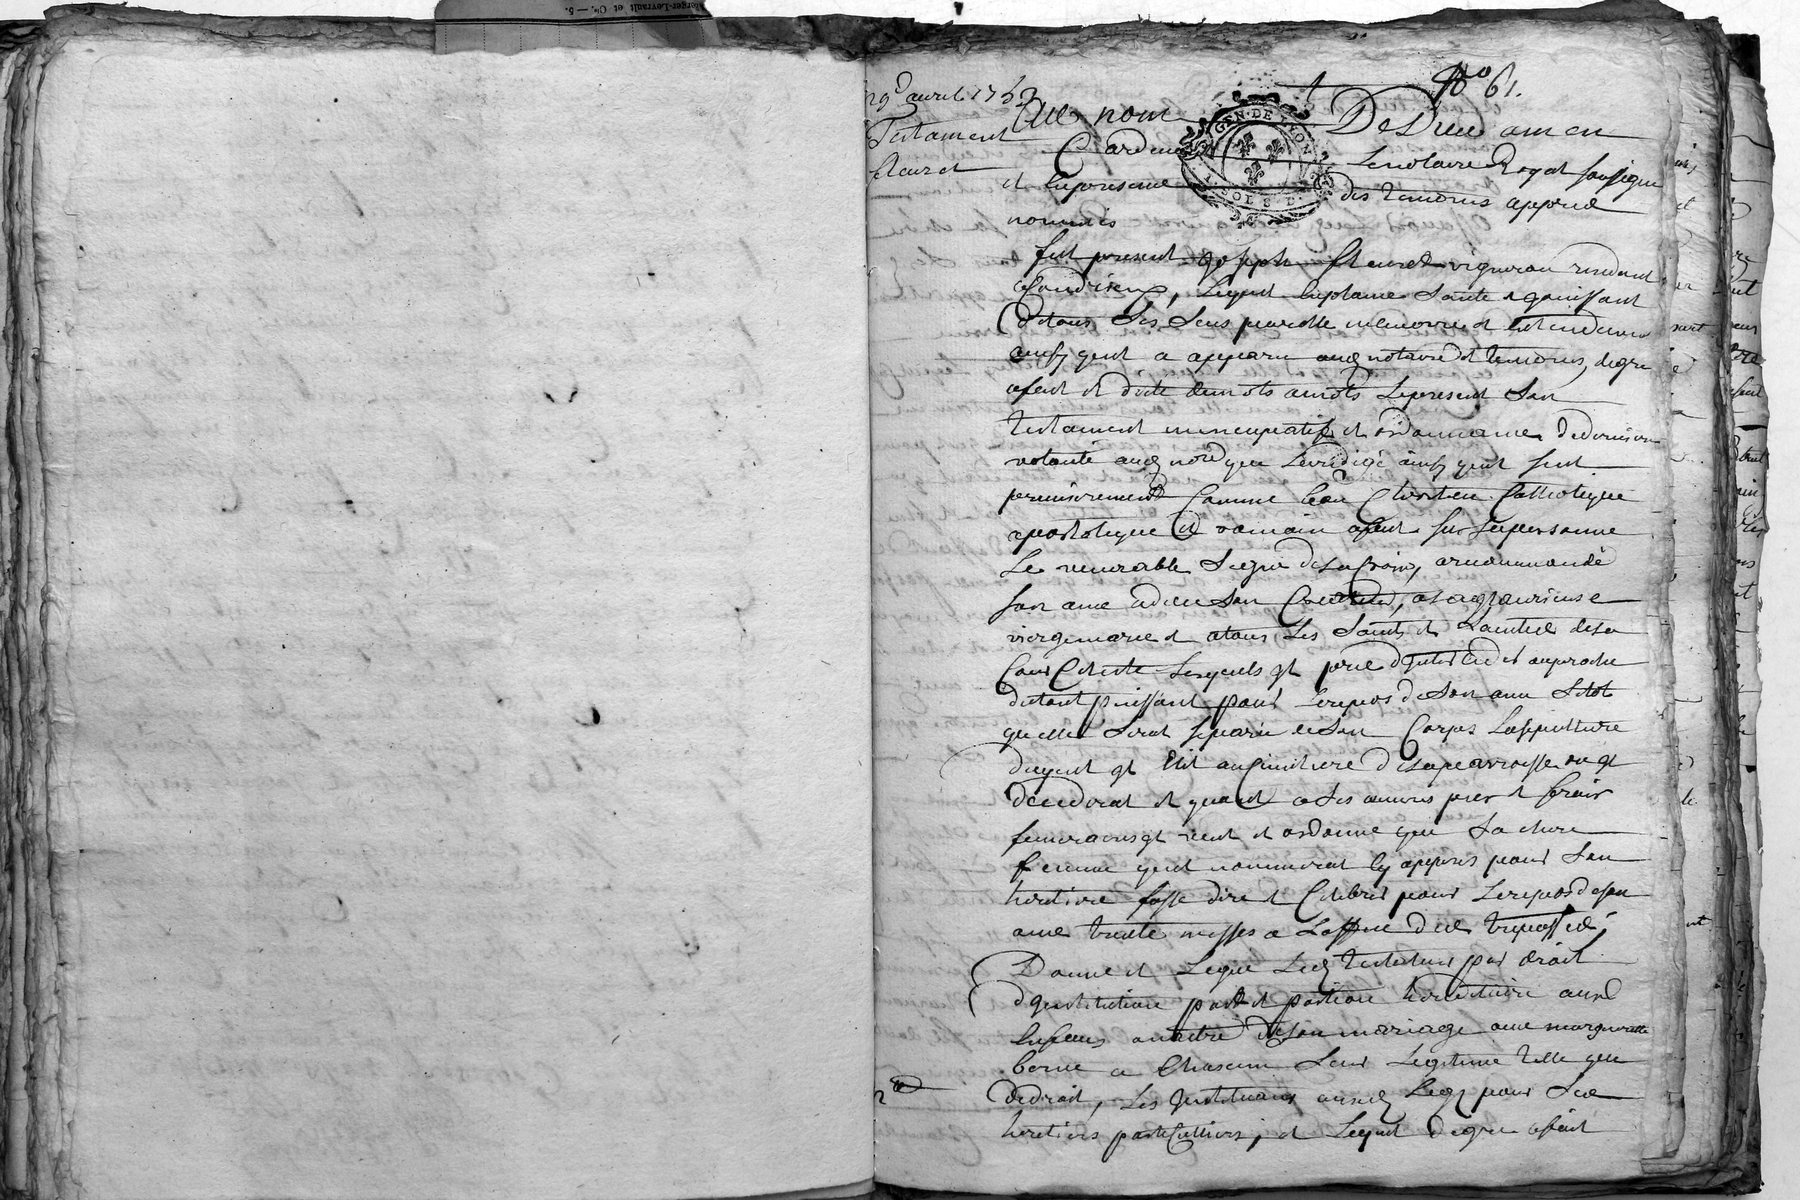 Berger-Levrault et Cie. — 5.
N° 61.
29e avril 175
Testament
Au nom De Dieu amen
GEN. DE LYON
SOLS
Pardevant Le notaire Royal soussigne
et En presence des temoins appres
nommés
fut present Joseph vigneron residant
Lequel Enplaine Sante et jouissant
De tous Ses Sens parolle memoire et Entendement
ainsy quil a apparu aux notaire et temoins, de gre
a fait et dicté de mots a mots Le present Son
testament nuncupatif et ordonnance De derniere
volonté aud nore qui La redigé ainsy quil suit
premierement Comme bon Chretien Catholique
apostolique et romain a fait sur sa personne
Le venerable Signe De La Croix, a recommandé
son ame a dieu Son Createur, a la glorieuse
vierge marie et a tous Les Saints et Saintes de la
Cour Celeste Lesquels il prie d'Interceder aupres
du tout puissant pour Le repos de Son ame Sitot
quelle Serat separée de Son Corps La sepulture
duquel il Elit au Cimetiere De La parroisse ou il
decedorat et quant a Ses œuvres pies et frais
funeraires il veut et ordonne que Sa chere
femme quil nommerat Cy appres pour Son
heritiere fasse dire et Celebrer pour Le repos de son
ame trente messes a L'office des trepassés;
Donne et Legue Led testateur par droit
d'Institution part et portion hereditaire aux
Enfans a naitre de son mariage avec margueritte
a Chascun Leur Legitime telle que
De droit, Les Instituant aud Legz pour Ses
heritiers particulliers; et Lequel de gre a fait